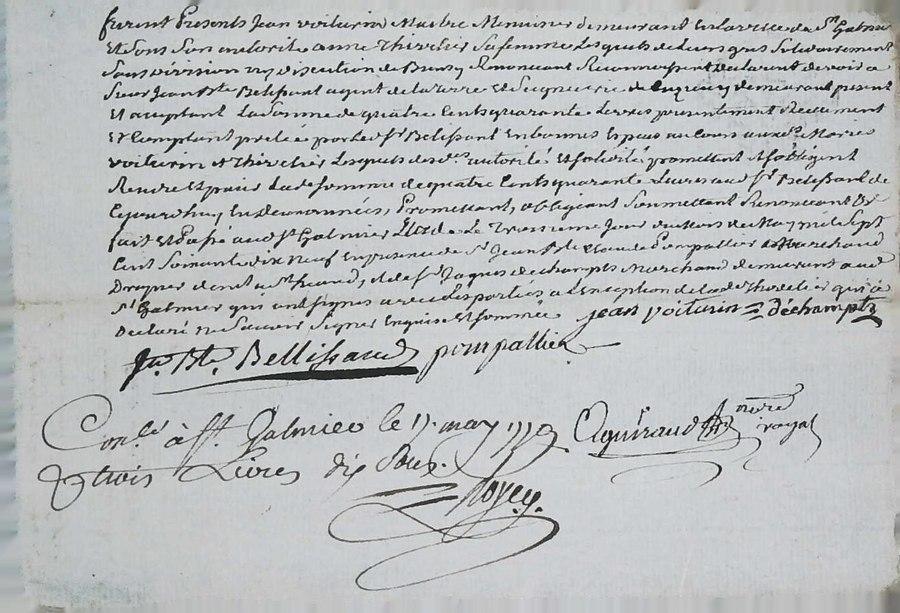 furent Presents Jean Voiturin Maitre Menuisier demeurant en la ville de St Galmier
Et Sous Son autorité anne Thivelier Sa femme Lesquels de Leurs gres Solidairement
Sans division ny discution de Biens y Renonceant Reconnoissent Et declarent devoir a
Sieur Jean Bte Belissant agent de la terre et Seigneurie de demeurant present
Et aceptant La Somme de quatre Cents quarante Livres presentement Reellement
Et Comptant pretée par led Sr Belissant En bonnes Especes au Cours auxds Mariés
Voiturin et Thivelier Lesquels des des autorité Et Solidité promettent Et s'obligent
Rendre Et paier Lad Somme de quatre Cents quarante Livres aud Sr Belissant de
Cejourdhuy En années, Promettant, obligeant Soumettant Renonceant &
fait Et Passé aud St Galmier Etude Le Troisieme Jour du Mois de May mil Sept
Cent Soixante dix Neuf En presence de Sr Jean Bte Claude Pompallier Marchand
Drapier de Et de Sr Jaques dechampts Marchand demeurant aud
St Galmier qui ont signés avec Les parties a L'Exception de lad Thivelier qui a
declaré ne Sauoir Signer Enquise Et Sommée jean voiturin dêchamptz
Jn Bte Bellissand pompallier
Conlé à St Galmier le may 1779 nore
& trois Livres dix Sous. royal